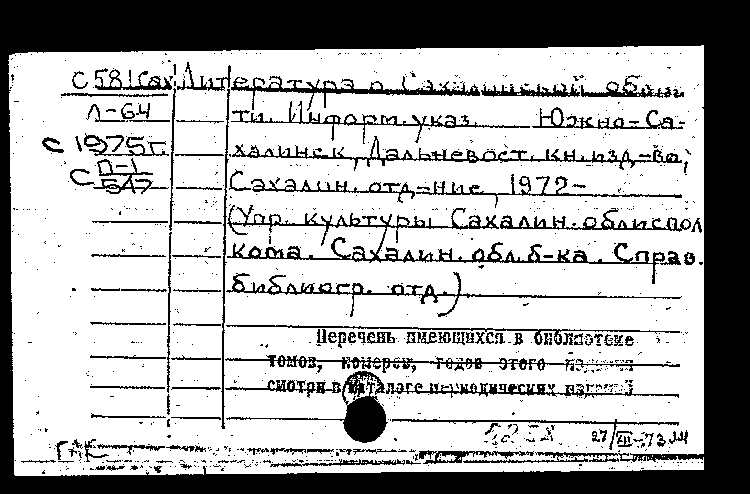 С 581 Сах Литература о Сахалинской облас
Л-64 ти. Информ. указ. Южно-Са-
с 1975г. халинск, Дальневост. кн. изд-во,
С П-1/547 Сахалин. отд-ние, 1972-
(Упр. культуры Сахалин. облиспол
кома. Сахалин. обл. б-ка. Справ.
библиогр. отд.)
Перечень имеющихся в библиотеке
томов, номеров, годов этого издания
смотри в каталоге периодических изданий
27/XII-73
ГАК